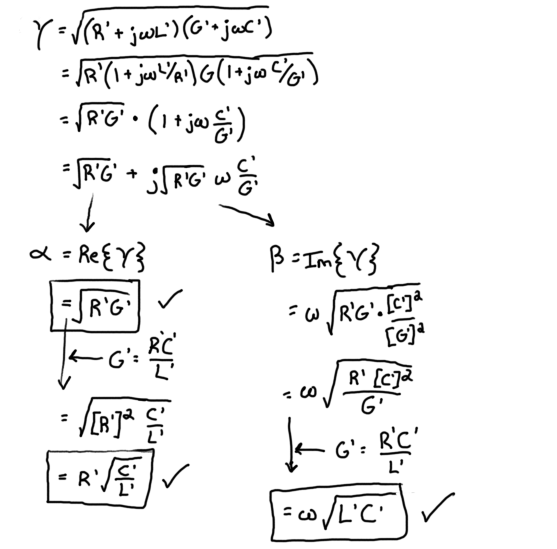 γ = √(R'+jωL')(G'+jωC')
= √R'(1+jωL'/R')G(1+jωC'/G')
= √R'G' · (1+jω C'/G')
= √R'G' + j√R'G' ω C'/G'
α = Re{γ}
= √R'G' ✓
← G' = R'C'/L'
= √[R']² C'/L'
= R'√C'/L' ✓
β = Im{γ}
= ω√R'G'·[C']²/[G']²
= ω√R'[C']²/G'
← G' = R'C'/L'
= ω√L'C' ✓